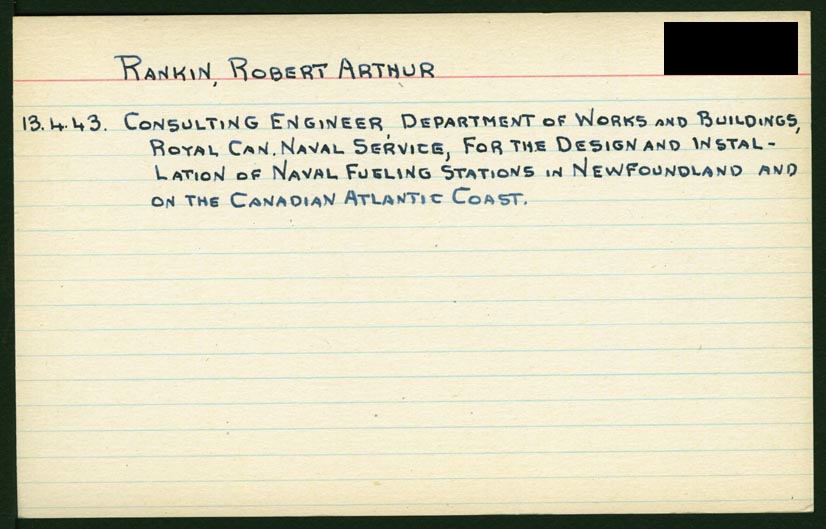 RANKIN, ROBERT ARTHUR
13.4.43. CONSULTING ENGINEER, DEPARTMENT OF WORKS AND BUILDINGS,
ROYAL CAN. NAVAL SERVICE, FOR THE DESIGN AND INSTAL-
LATION OF NAVAL FUELING STATIONS IN NEWFOUNDLAND AND
ON THE CANADIAN ATLANTIC COAST.